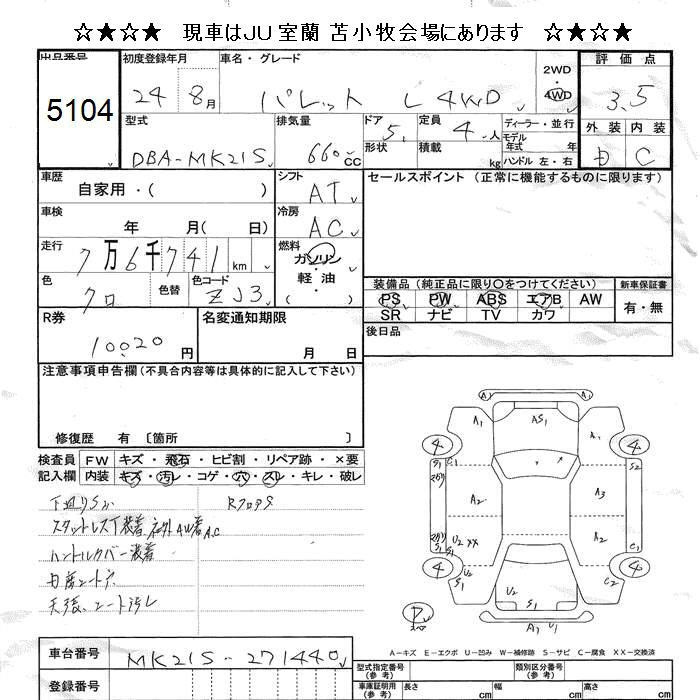 ☆★☆★ 現車はJU室蘭 苫小牧会場にあります ☆★☆★
出品番号 初度登録年月 車名・グレード 2WD 4WD 評価点
5104 24 8月 パレット L 4WD 3.5
型式 排気量 ドア 定員 ディーラー・並行 外装 内装
DBA-MK21S 660cc 5 4人 モデル年式 年 D C
形状 積載 kg ハンドル 左・右
車歴 シフト セールスポイント (正常に機能するものに限ります)
自家用・( ) AT
車検 冷房
年 月( 日) AC
走行 燃料
7万6千741km ガソリン・軽油
色 色替 色コード 装備品 (純正品に限り○をつけてください) 新車保証書
クロ ZJ3 ( ) PS PW ABS エアB AW 有・無
SR ナビ TV カワ
R券 名変通知期限 後日品
10020円 月 日
注意事項申告欄(不具合内容等は具体的に記入して下さい)
修復歴 有 〔箇所 〕
検査員 FW キズ・飛石・ヒビ割・リペア跡・×要
記入欄 内装 キズ・汚レ・コゲ・穴・スレ・キレ・破レ
下廻りS RフロアS
スタットレスT装着 社外AW着 A.C
ハントルカバー装着
天張、シート汚レ
A1
A1 AS1 A1
4 4
S1 C1 S2
A2 A3
U2 XX A2
S1 C1
4 4
S1 U2 U2 S1 C2
A1 U1
A-キズ E-エクボ U-凹み W-補修跡 S-サビ C-腐食 XX-交換済
車台番号 MK21S-271440 型式指定番号(参考) 類別区分番号(参考)
登録番号 車庫証明用(参考) 長さ cm 幅 cm 高さ cm